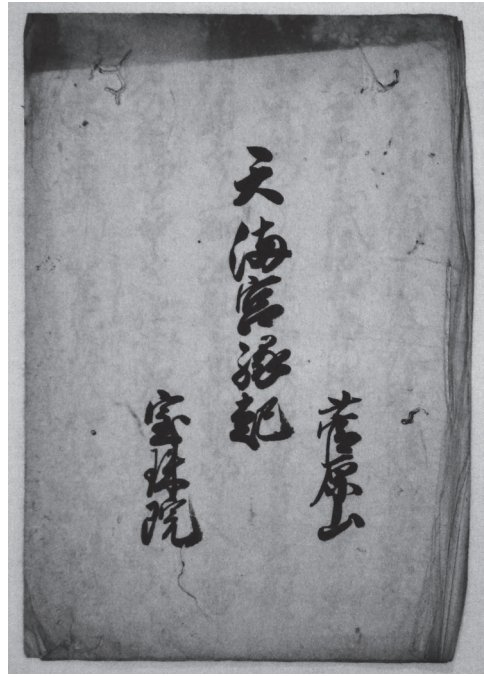 菅原山
天満宮縁起
宝珠院